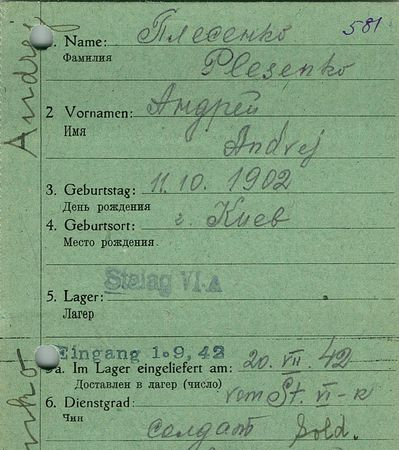 1. Name: Плесенко 581
Фамилия Plesenko
2 Vornamen: Андрей
Имя Andrej
3. Geburtstag: 11.10. 1902
День рождения
4. Geburtsort: г. Киев
Место рождения.
Stalag VI A
5. Lager:
Лагер
Eingang 1.9,42
5a. Im Lager eingeliefert am: 20. VII. 42
Доставлен в лагер (число)
6. Dienstgrad: vom St. VI-K
Чин солдат Sold.
Andrej